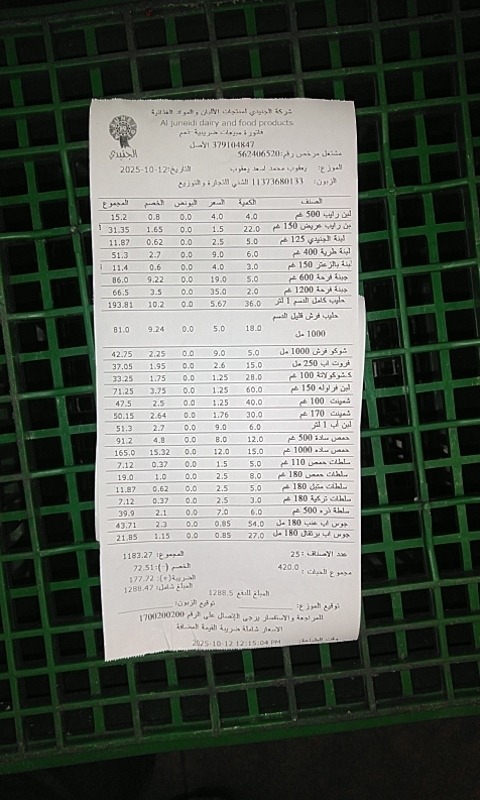 شركة الجنيدي لمنتجات الألبان والمواد الغذائية
Al juneidi dairy and food products
فاتورة مبيعات ضريبية
379104847 الأصل
مشتغل مرخص رقم:562406520
الموزع: يعقوب محمد اسعد يعقوب التاريخ:12-10-2025
الزبون: 11373680133 الشني للتجارة والتوزيع
الجنيدي
الصنف الكمية السعر البونص الخصم المجموع
لبن رايب 500 غم 4.0 4.0 0.0 0.8 15.2
لبن رايب عريض 150 غم 22.0 1.5 0.0 1.65 31.35
لبنة الجنيدي 125 غم 5.0 2.5 0.0 0.62 11.87
لبنة طرية 400 غم 6.0 9.0 0.0 2.7 51.3
لبنة بالزعتر 150 غم 4.0 3.0 0.0 0.6 11.4
جبنة فرحة 600 غم 5.0 19.0 0.0 9.22 86.0
جبنة فرحة 1200 غم 2.0 35.0 0.0 3.5 66.5
حليب كامل الدسم 1 لتر 36.0 5.67 0.0 10.2 193.81
حليب فرش قليل الدسم 1000 مل 18.0 5.0 0.0 9.24 81.0
شوكو فرش 1000 مل 5.0 9.0 0.0 2.25 42.75
فروت اب 250 مل 15.0 2.6 0.0 1.95 37.05
ك.شوكولاتة 100 غم 28.0 1.25 0.0 1.75 33.25
لبن فراولة 150 غم 60.0 1.25 0.0 3.75 71.25
شمينت 100 غم 40.0 1.25 0.0 2.5 47.5
شمينت 170 غم 30.0 1.76 0.0 2.64 50.15
لبن أب 1 لتر 6.0 9.0 0.0 2.7 51.3
حمص سادة 500 غم 12.0 8.0 0.0 4.8 91.2
حمص سادة 1000 غم 15.0 12.0 0.0 15.32 165.0
سلطات حمص 110 غم 5.0 1.5 0.0 0.37 7.12
سلطات حمص 180 غم 8.0 2.5 0.0 1.0 19.0
سلطات متبل 180 غم 5.0 2.5 0.0 0.62 11.87
سلطات تركية 180 غم 3.0 2.5 0.0 0.37 7.12
سلطة ذره 500 غم 6.0 7.0 0.0 2.1 39.9
جوس اب عنب 180 مل 54.0 0.85 0.0 2.3 43.71
جوس اب برتقال 180 مل 27.0 0.85 0.0 1.15 21.85
عدد الاصناف : 25 المجموع: 1183.27
مجموع الحبات : 420.0 الخصم (-):72.51
الضريبة(+): 177.72
المبلغ شامل: 1288.47
المبلغ للدفع 1288.5
توقيع الموزع: توقيع الزبون:
للمراجعة والاستفسار يرجى الإتصال على الرقم 1700200200
الاسعار شاملة ضريبة القيمة المضافة
2025-10-12 12:15:04 PM